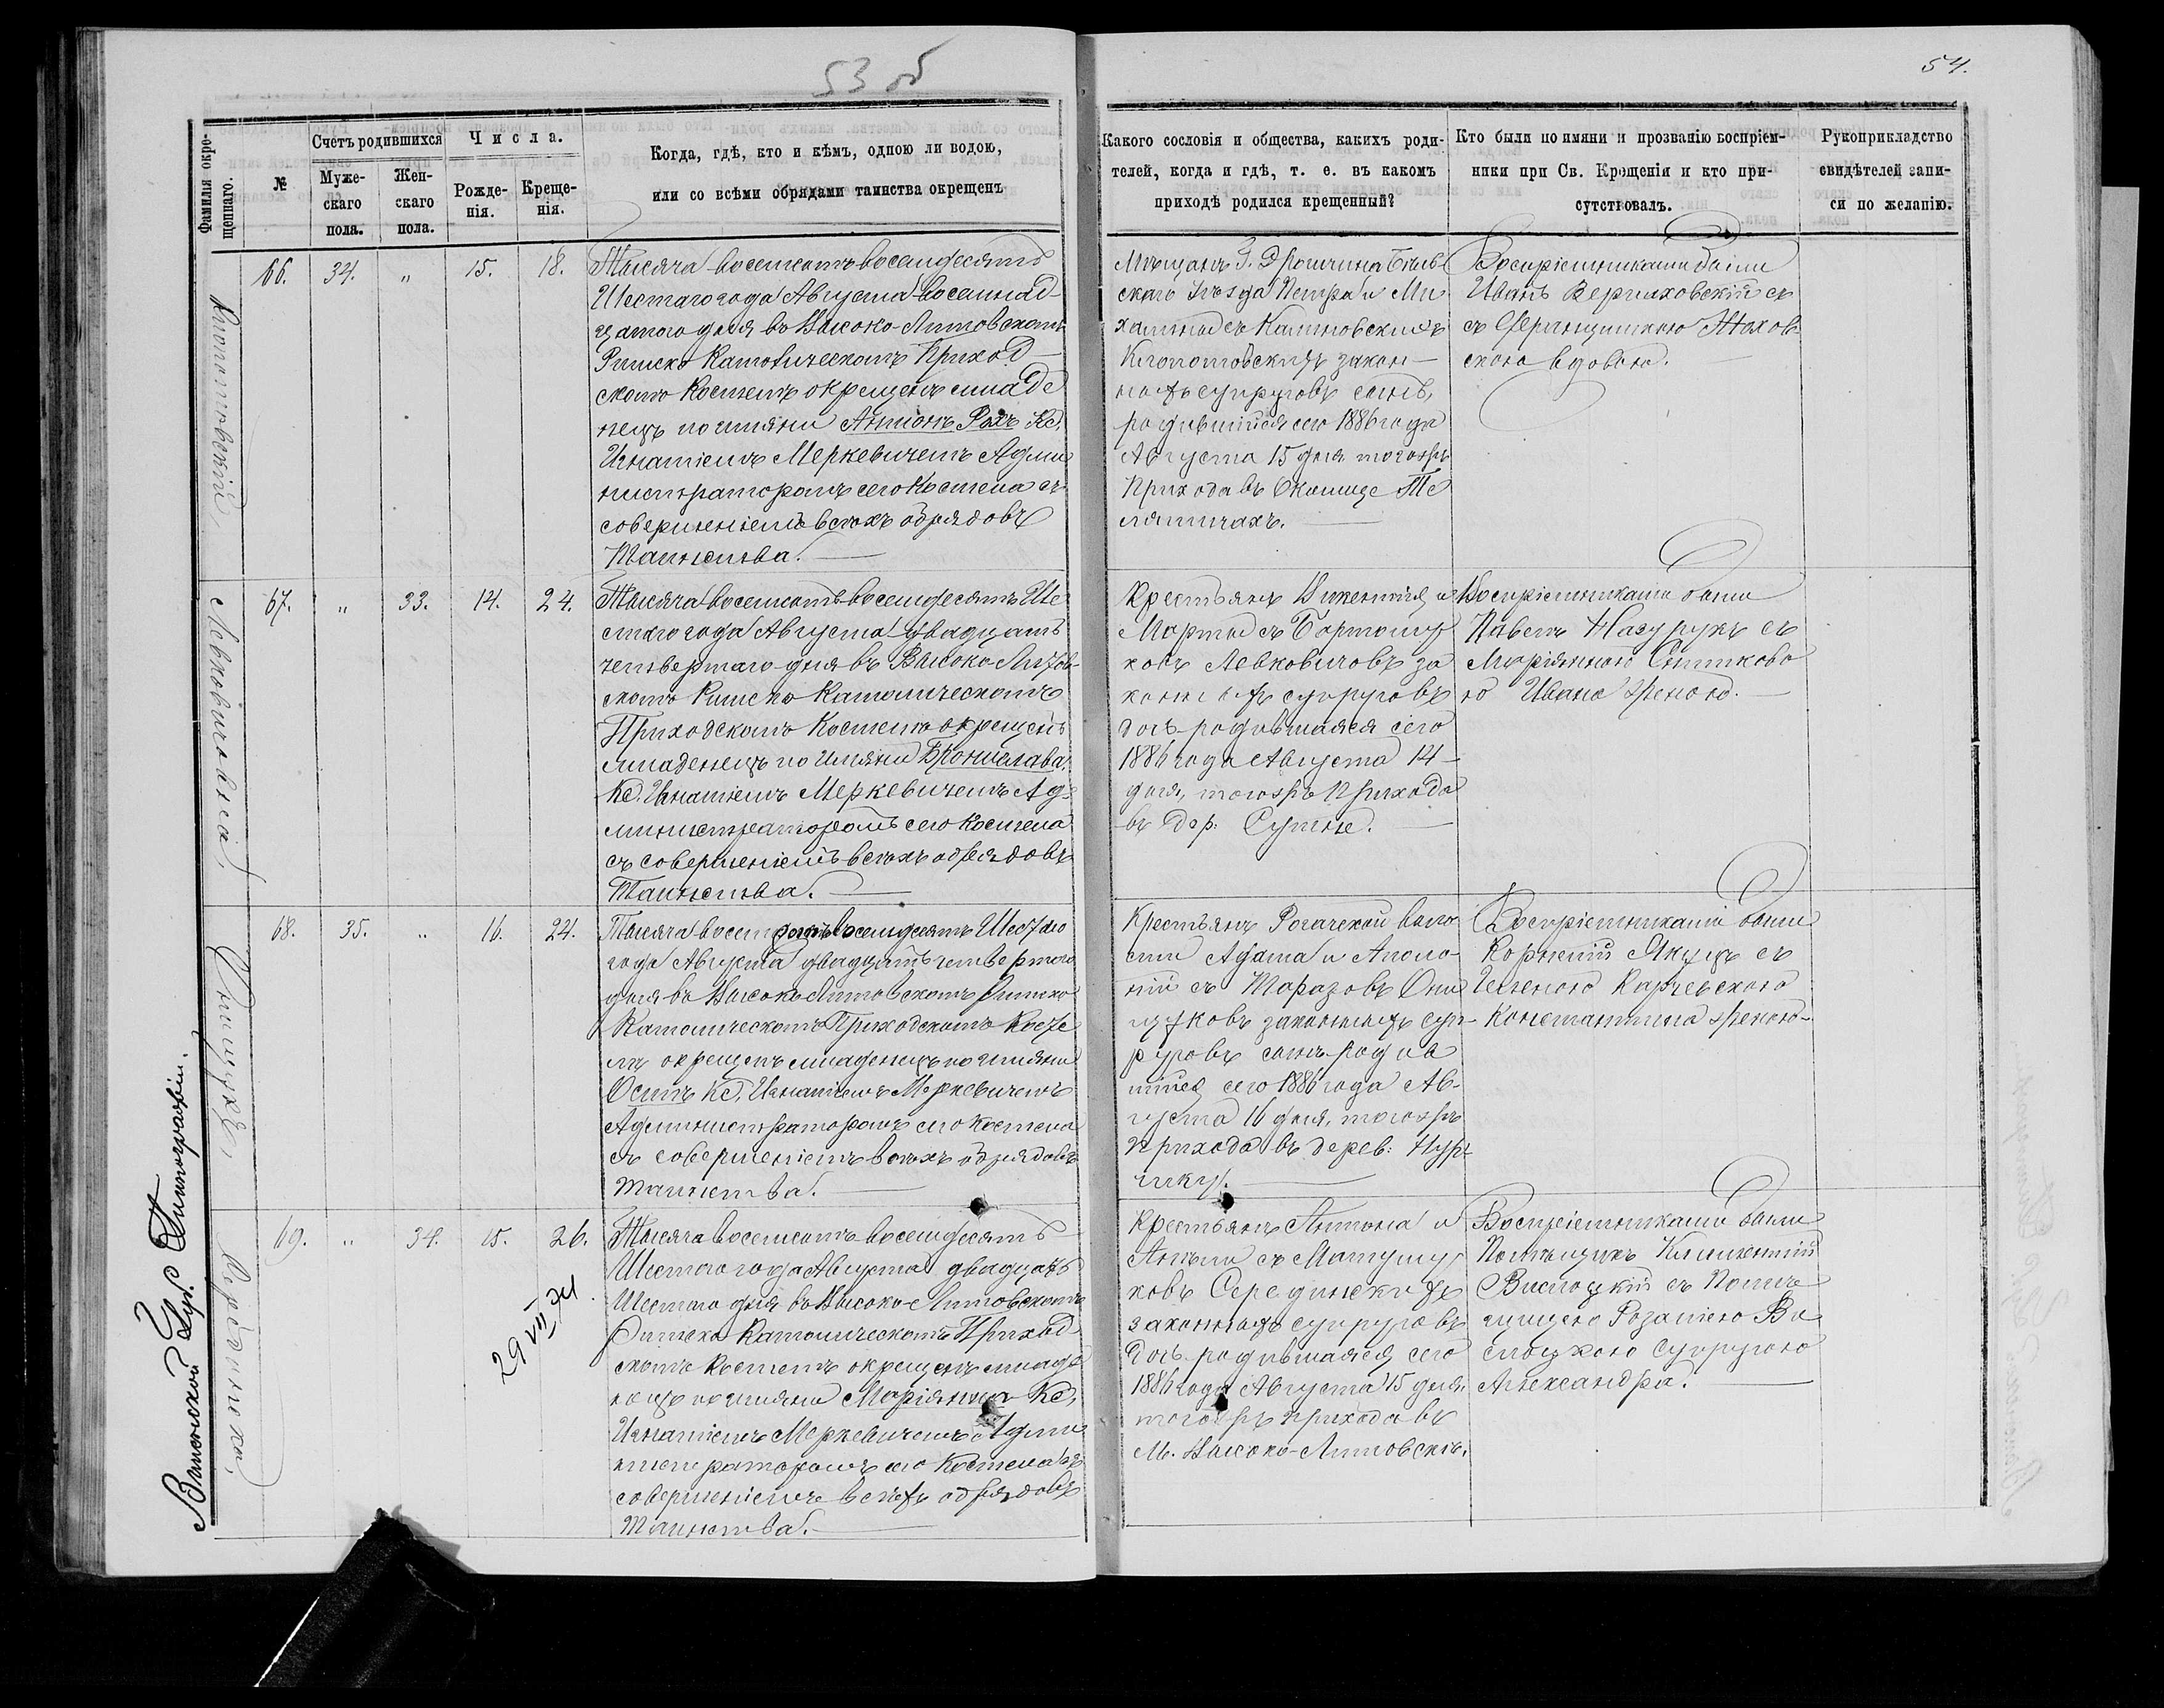 53 об
54.
Фамилія окре-
щеннаго.
№
Счетъ родившихся
Муже-
скаго
пола.
Жен-
скаго
пола.
Числа.
Рожде-
нія.
Креще-
нія.
Когда, гдѣ, кто и кѣмъ, одною ли водою,
или со всѣми обрядами таинства окрещенъ
Какого сословія и общества, какихъ роди-
телей, когда и гдѣ, т. е. въ какомъ
приходѣ родился крещенный?
Кто были по имяни и прозванію воспріем-
ники при Св. Крещенія и кто при-
сутствовалъ.
Рукоприкладство
свидѣтелей запи-
си по желанію.
Клопотовскій,
66. 34. „ 15. 18.
Тысяча восемсотъ восемдесятъ
Шестаго года Августа восемнад-
цатого дня въ Высоко-Литовскомъ
Римско Католическомъ Приход-
скомъ Костелѣ окрещенъ младе
нецъ по имяни Антонъ Рохъ Кс.
Игнатіемъ Меркевичемъ Адми
нистраторомъ сего Костела съ
совершеніемъ всѣхъ обрядовъ
Таинства.
Мѣщанъ Г. Дрогичина Бѣль-
скаго Уѣзда Петра и Ми
халины съ Калиновскихъ
Клопотовскихъ закон-
ныхъ супруговъ сынъ,
родившійся сего 1886 года
Августа 15 дня тогожъ
Прихода въ Околице Те
лятичахъ.
Воспріемниками были
Иванъ Вержховскій съ
съ Францишкою Жохов-
скою вдовою.
Левковичовна,
67. „ 33. 14. 24.
Тысяча восемсотъ восемдесятъ Ше
стого года Августа двадцатъ
четвертаго дня въ Высоко-Литов-
скомъ Римско Католическомъ
Приходскомъ Костелѣ окрещенъ
младенецъ по Имяни Брониславa,
Кс. Игнатіемъ Меркевичемъ Ад-
министраторомъ сего Костела
съ совершеніемъ всѣхъ обрядовъ
Таинства.
Крестьянъ Викентія и
Марты съ Бартошу
ковъ Левковичовъ за
конныхъ супруговъ
дочь родившаяся сего
1886 года Августа 14
дня, тогожъ Прихода
въ Дер: Сутне.
Воспріемниками были
Павелъ Назурукъ съ
Маріянною Сытиково
ю Ивана женою.
Онищукъ,
68. 35. „ 16. 24.
Тысяча восемсотъ восемдесятъ Шестаго
года Августа двадцатъ четвертого
дня въ Высоко Литовскомъ Римско
Католическомъ Приходскомъ Косте
лѣ окрещенъ младенецъ по имяни
Осипъ Кс. Игнатіемъ Меркевичемъ
Администраторомъ сего Костела
съ совершеніемъ всѣхъ обрядовъ
таинства.
Крестьянъ Рогачской воло
сти Адама и Аполо-
ніи съ Таразовъ Они
щуковъ законныхъ суп-
руговъ сынъ родив
шійся сего 1886 года Ав-
густа 16 дня, тогожъ
Прихода въ дерев: Нур-
чику.
Воспріемниками были
Корнелій Якуцъ съ
Еленою Карчевскою
Константина женою.
Сердинска,
69. „ 34. 15. 26.
29 VII 74.
Тысяча восемсотъ восемдесятъ
Шестого года Августа двадцатъ
Шестого дня въ Высоко-Литовскомъ
Римско Католическомъ Приход
скомъ Костелѣ окрещенъ младе
нецъ по имяни Маріянна Кс.
Игнатіемъ Меркевичемъ Адми
нистраторомъ сего Костела съ
совершеніемъ всѣхъ обрядовъ
таинства.
Крестьянъ Антона и
Анели съ Матушу
ковъ Серединскихъ
законныхъ супруговъ
Дочь родившаяся сего
1886 года Августа 15 дня
тогожъ прихода въ
М. Высоко-Литовскѣ.
Воспріемниками были
Помѣщикъ Климентій
Вислоцкій съ Помѣ
щицею Розаліею Ви
слоцкою супругою
Александра.
Виленской Губ. Типографіи.